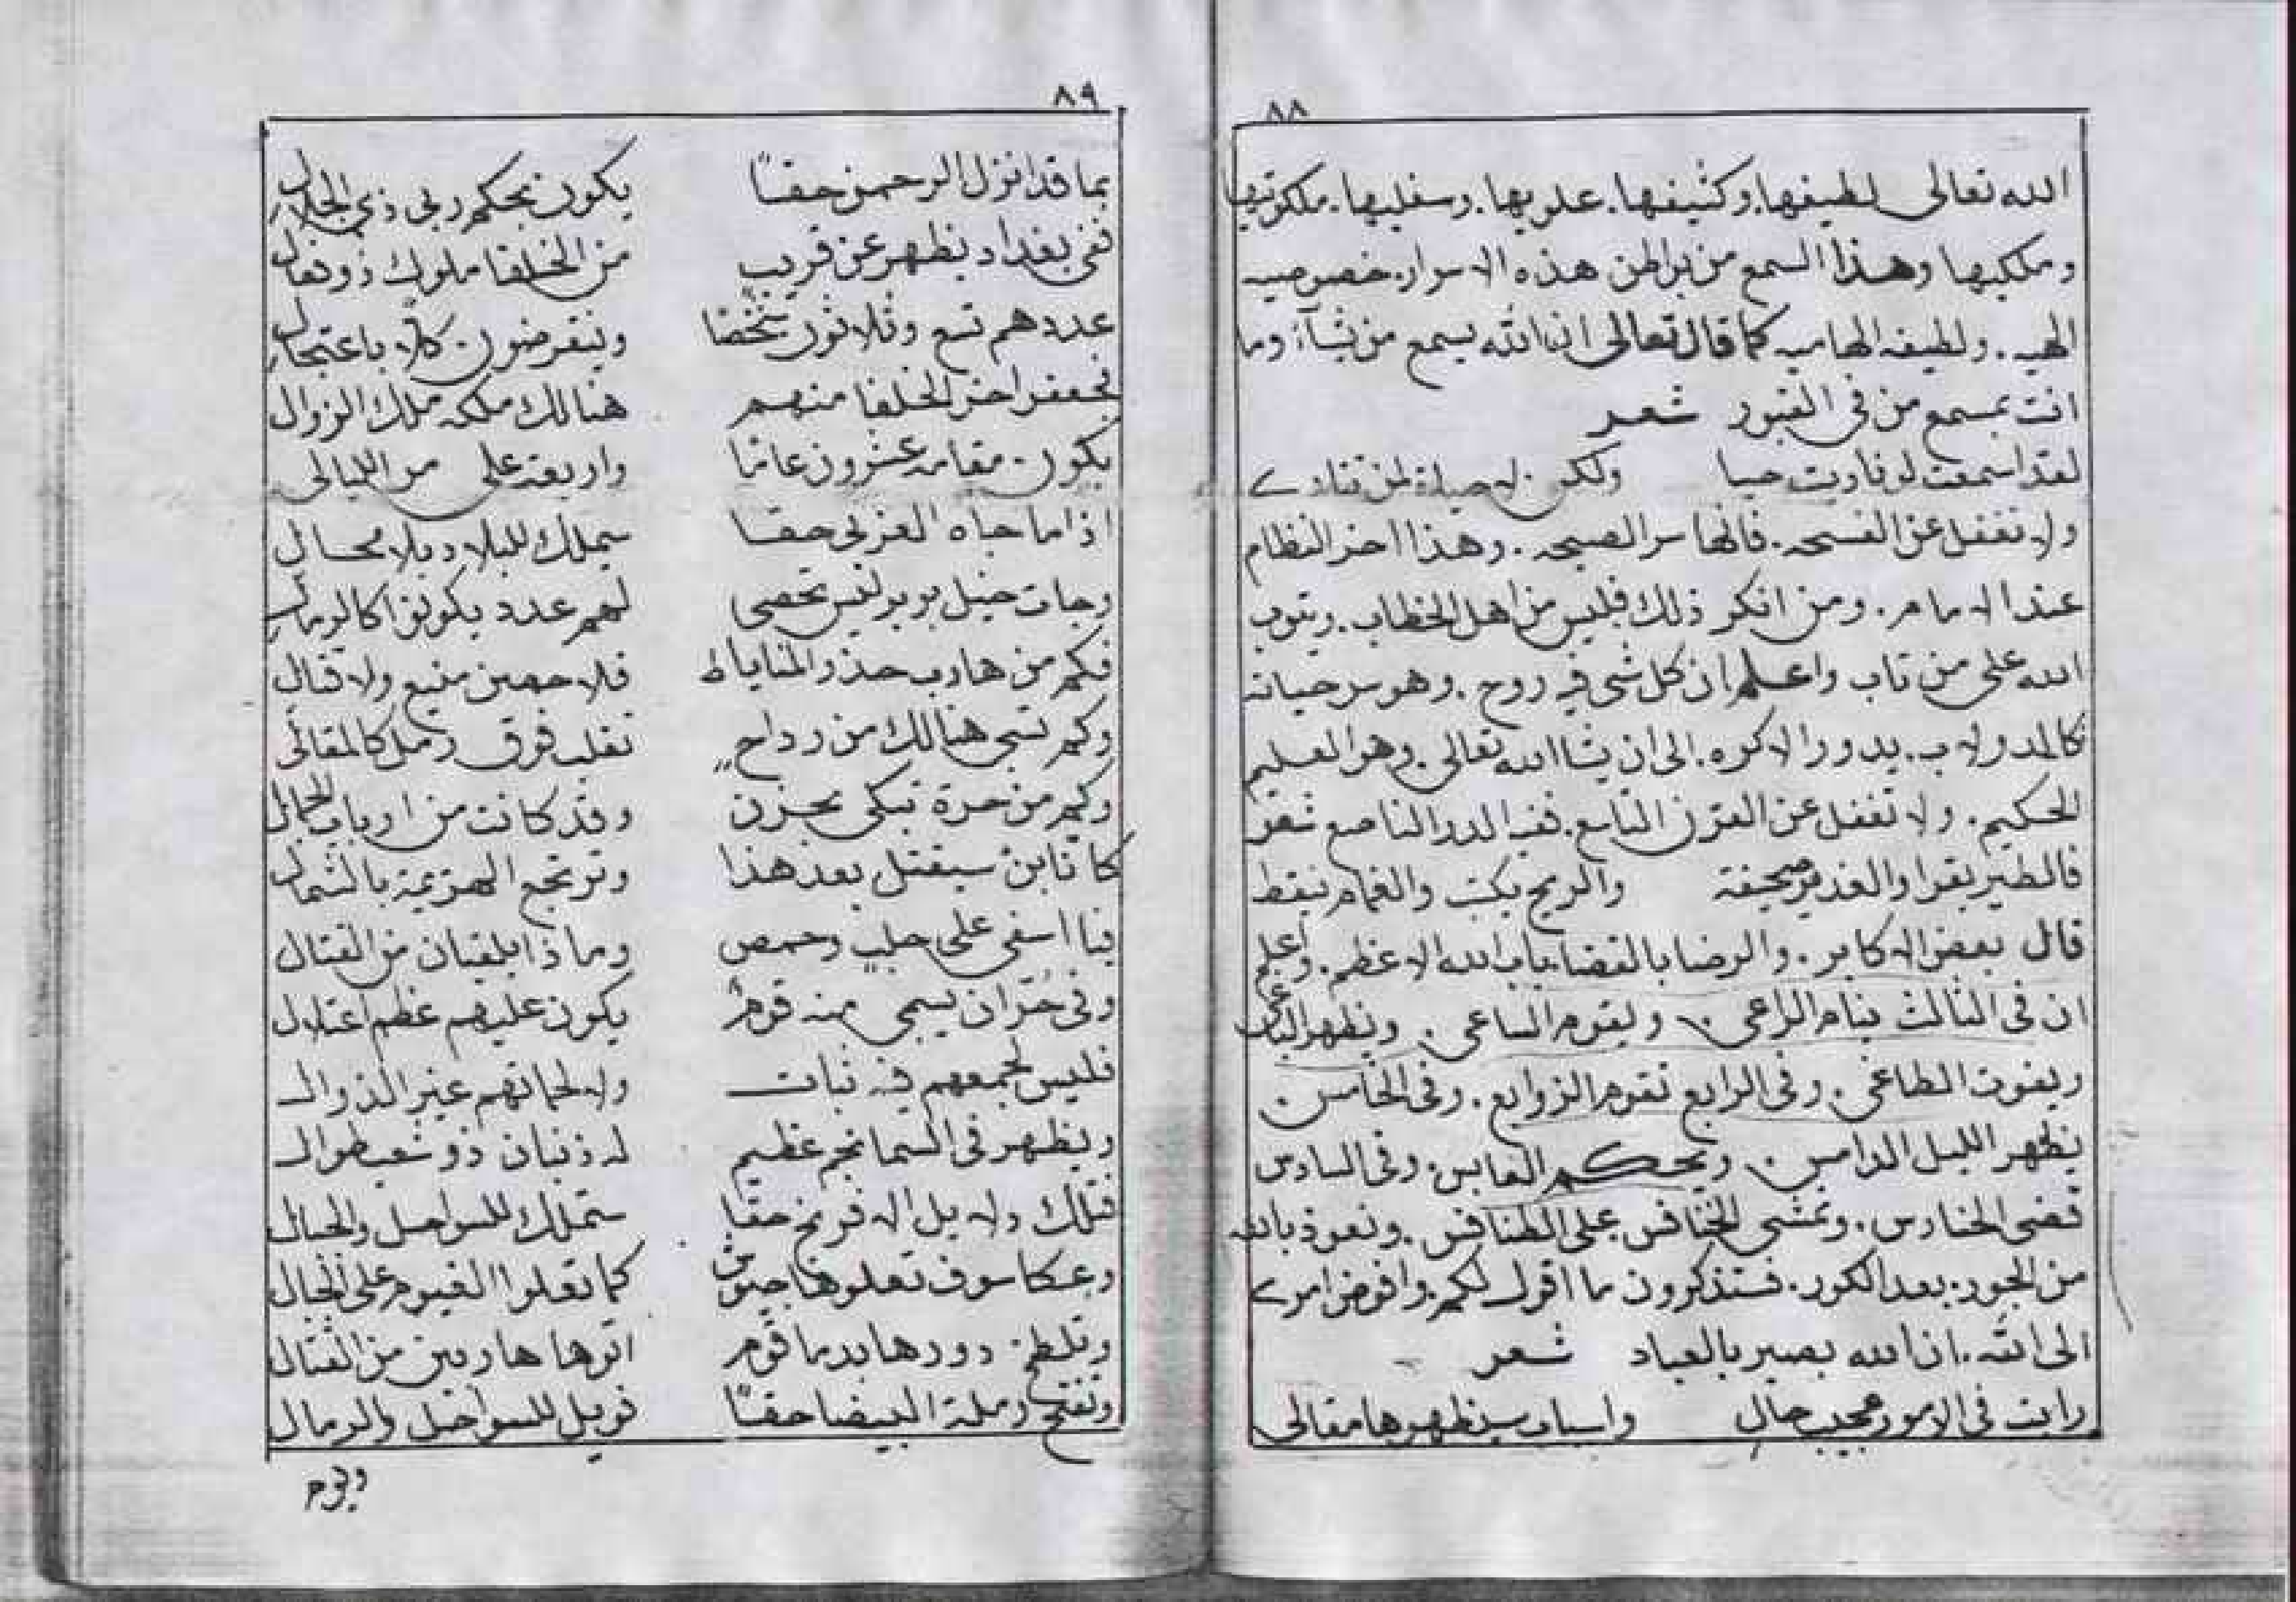 ٨٨
الله تعالى لطيفها. وكثيفها. علويها. وسفليها. ملكوتيها
وملكيها وهذا السمع من بواطن هذه الاسرار. خصوصيه
الهيه. ولطيفه الهاميه كما قال تعالى ان الله يسمع من يشآء وما
انت بمسمع من فى القبور شعر
لقد اسمعت لو ناديت حيا ولكن لا حياة لمن تنادي
ولا تغفل عن الفسحه. فانها سر الصيحه. وهذا اخر النظام
عند الامام. ومن انكر ذلك فليس من اهل الخطاب. ويتوب
الله على من تاب واعلم ان كل شى فيه روح. وهو سر حياته
كالمدولاب. يدور الاكره. الى ان يشا الله تعالى. وهو العليم
الحكيم. ولا تغفل عن القرن التاسع. ففيه الدر الناصع شعر
فالطير يقرا والغدير صحيفة والريح يكتب والغمام ينقط
قال بعض الاكابر. والرضا بالقضا باب الله الاعظم. واعلم
ان فى الثالث ينام الراعى. ويقوم الساعى. ويظهر الباغى
ويفوت الطاغى. وفى الرابع تقوم الزوابع. وفى الخامس.
يظهر الليل الدامس. ويحكم العابس. وفى السادس
قضى الحنادس. وتمشى الخنافس على الطنافس. ونعوذ بالله
من الجور. بعد الكور. فستذكرون ما اقول لكم. وافوض امري
الى الله. ان الله بصير بالعباد شعر
رايت فى الامور عجيب حال واسباب سيظهرها مقالى
٨٩
بما قد انزل الرحمن حقاً يكون بحكم ربى ذي الجلال
ففى بغداد يظهر عن قريب من الخلفا ملوك ذو فعال
عددهم تسع وثلاثون شخصًا وينقرضون كلاً باعتجال
فجعفر اخر الخلفا منهم هنالك ملكه ملك الزوال
يكون مقامه عشرون عامًا واربعة على مر الليالى
اذا ما جاه الغزى حقا سيملك للبلاد بلا محال
وجات خيل بربر ليس تحصى لهم عدد يكونوا كالرمال
فكم من هارب حذر المنايا فلا حصن منيع ولا قتال
وكم تسبى هنالك من رداح تقلب فوق رمل كالمقالى
وكم من حرة تبكى بحزن وقد كانت من ارباب الجمال
سيقتل بعد هذا وترتجع الهزيمة بالشمال
فيا اسفى على حلب وحمص وماذا يلقيان من القتال
وفى حرّان يسبى منه قومٌ يكون عليهم عظم اعتلال
فليس لجمعهم فيه ثبات ولا لحماتهم غير الذوال
ويظهر فى السما نجم عظيم له ذنبان ذو شعب طوال
فتلك دلايل الافرنج حقا ستملك للسواحل والجبال
وعكا سوف تعلوها جيوش كما تعلوا الغيوم على الجبال
دورها بدما قوم اتوها هاربين من القتال
وتفتح رملة البيضا حقاً فويل للسواحل والرمال